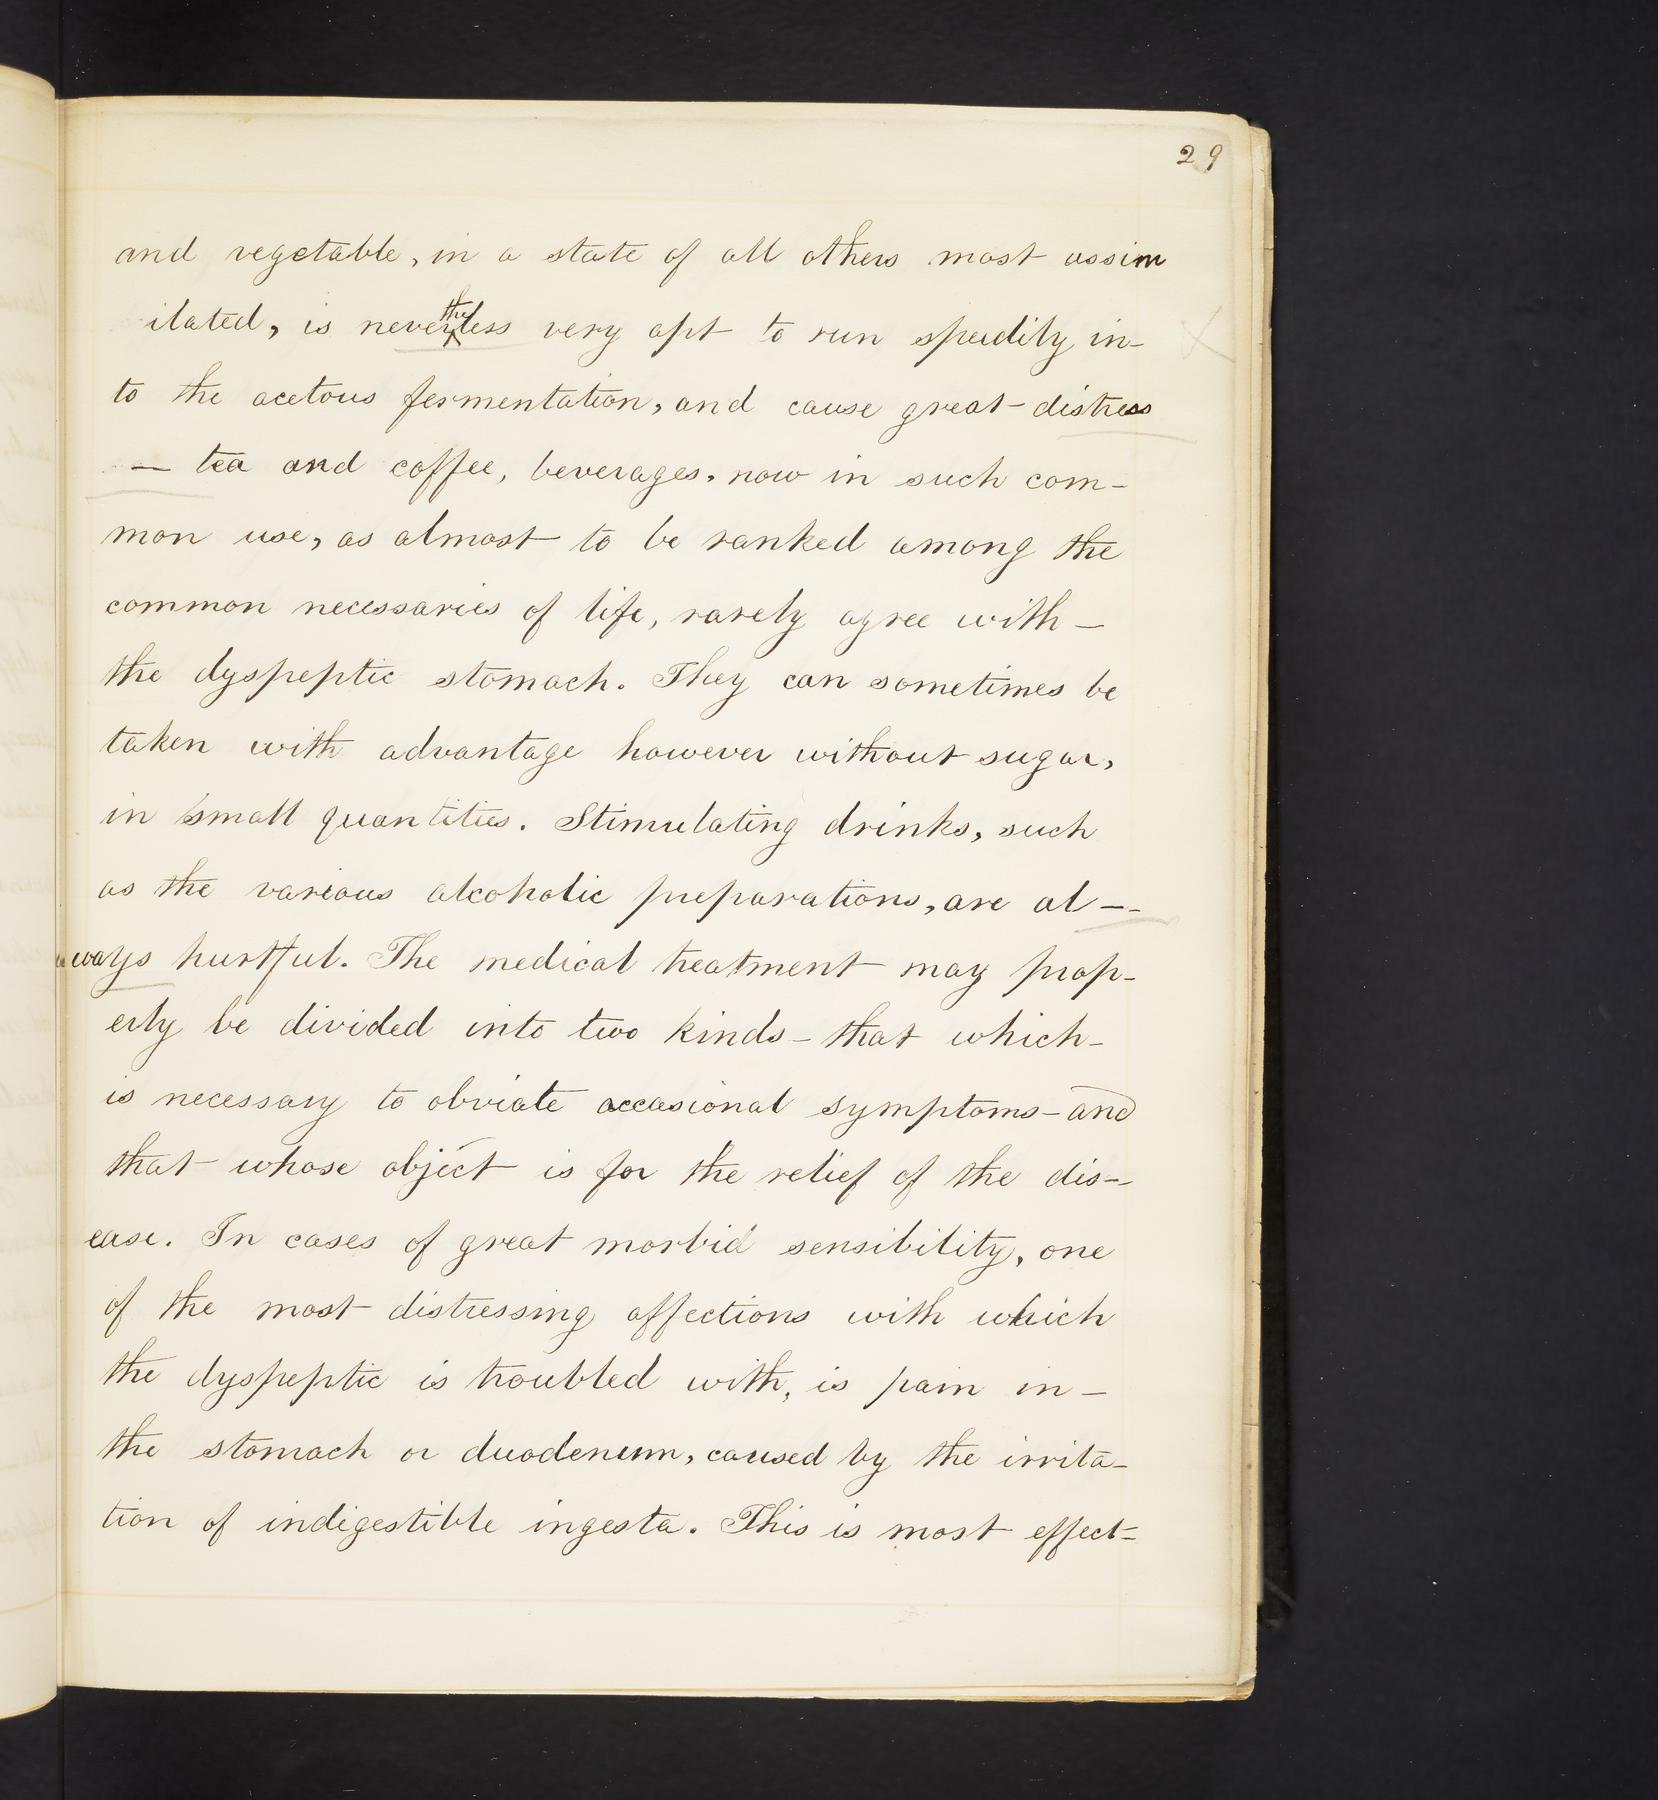 29
and vegetable, in a state of all others most assim
ilated, is nevertheless very apt to run speedily in-
to the acetous fermentation, and cause great distress
— tea and coffee, beverages, now in such com-
mon use, as almost to be ranked among the
common necessaries of life, rarely agree with —
the dyspeptic stomach. They can sometimes be
taken with advantage however without sugar,
in small quantities. Stimulating drinks, such
as the various alcoholic preparations, are al--
ways hurtful. The medical treatment may prop-
erly be divided into two kinds - that which -
is necessary to obviate occasional symptoms - and
that whose object is for the relief of the dis--
ease. In cases of great morbid sensibility, one
of the most distressing affections with which
the dyspeptic is troubled with, is pain in -
the stomach or duodenum, caused by the irrita-
tion of indigestible ingesta. This is most effect-